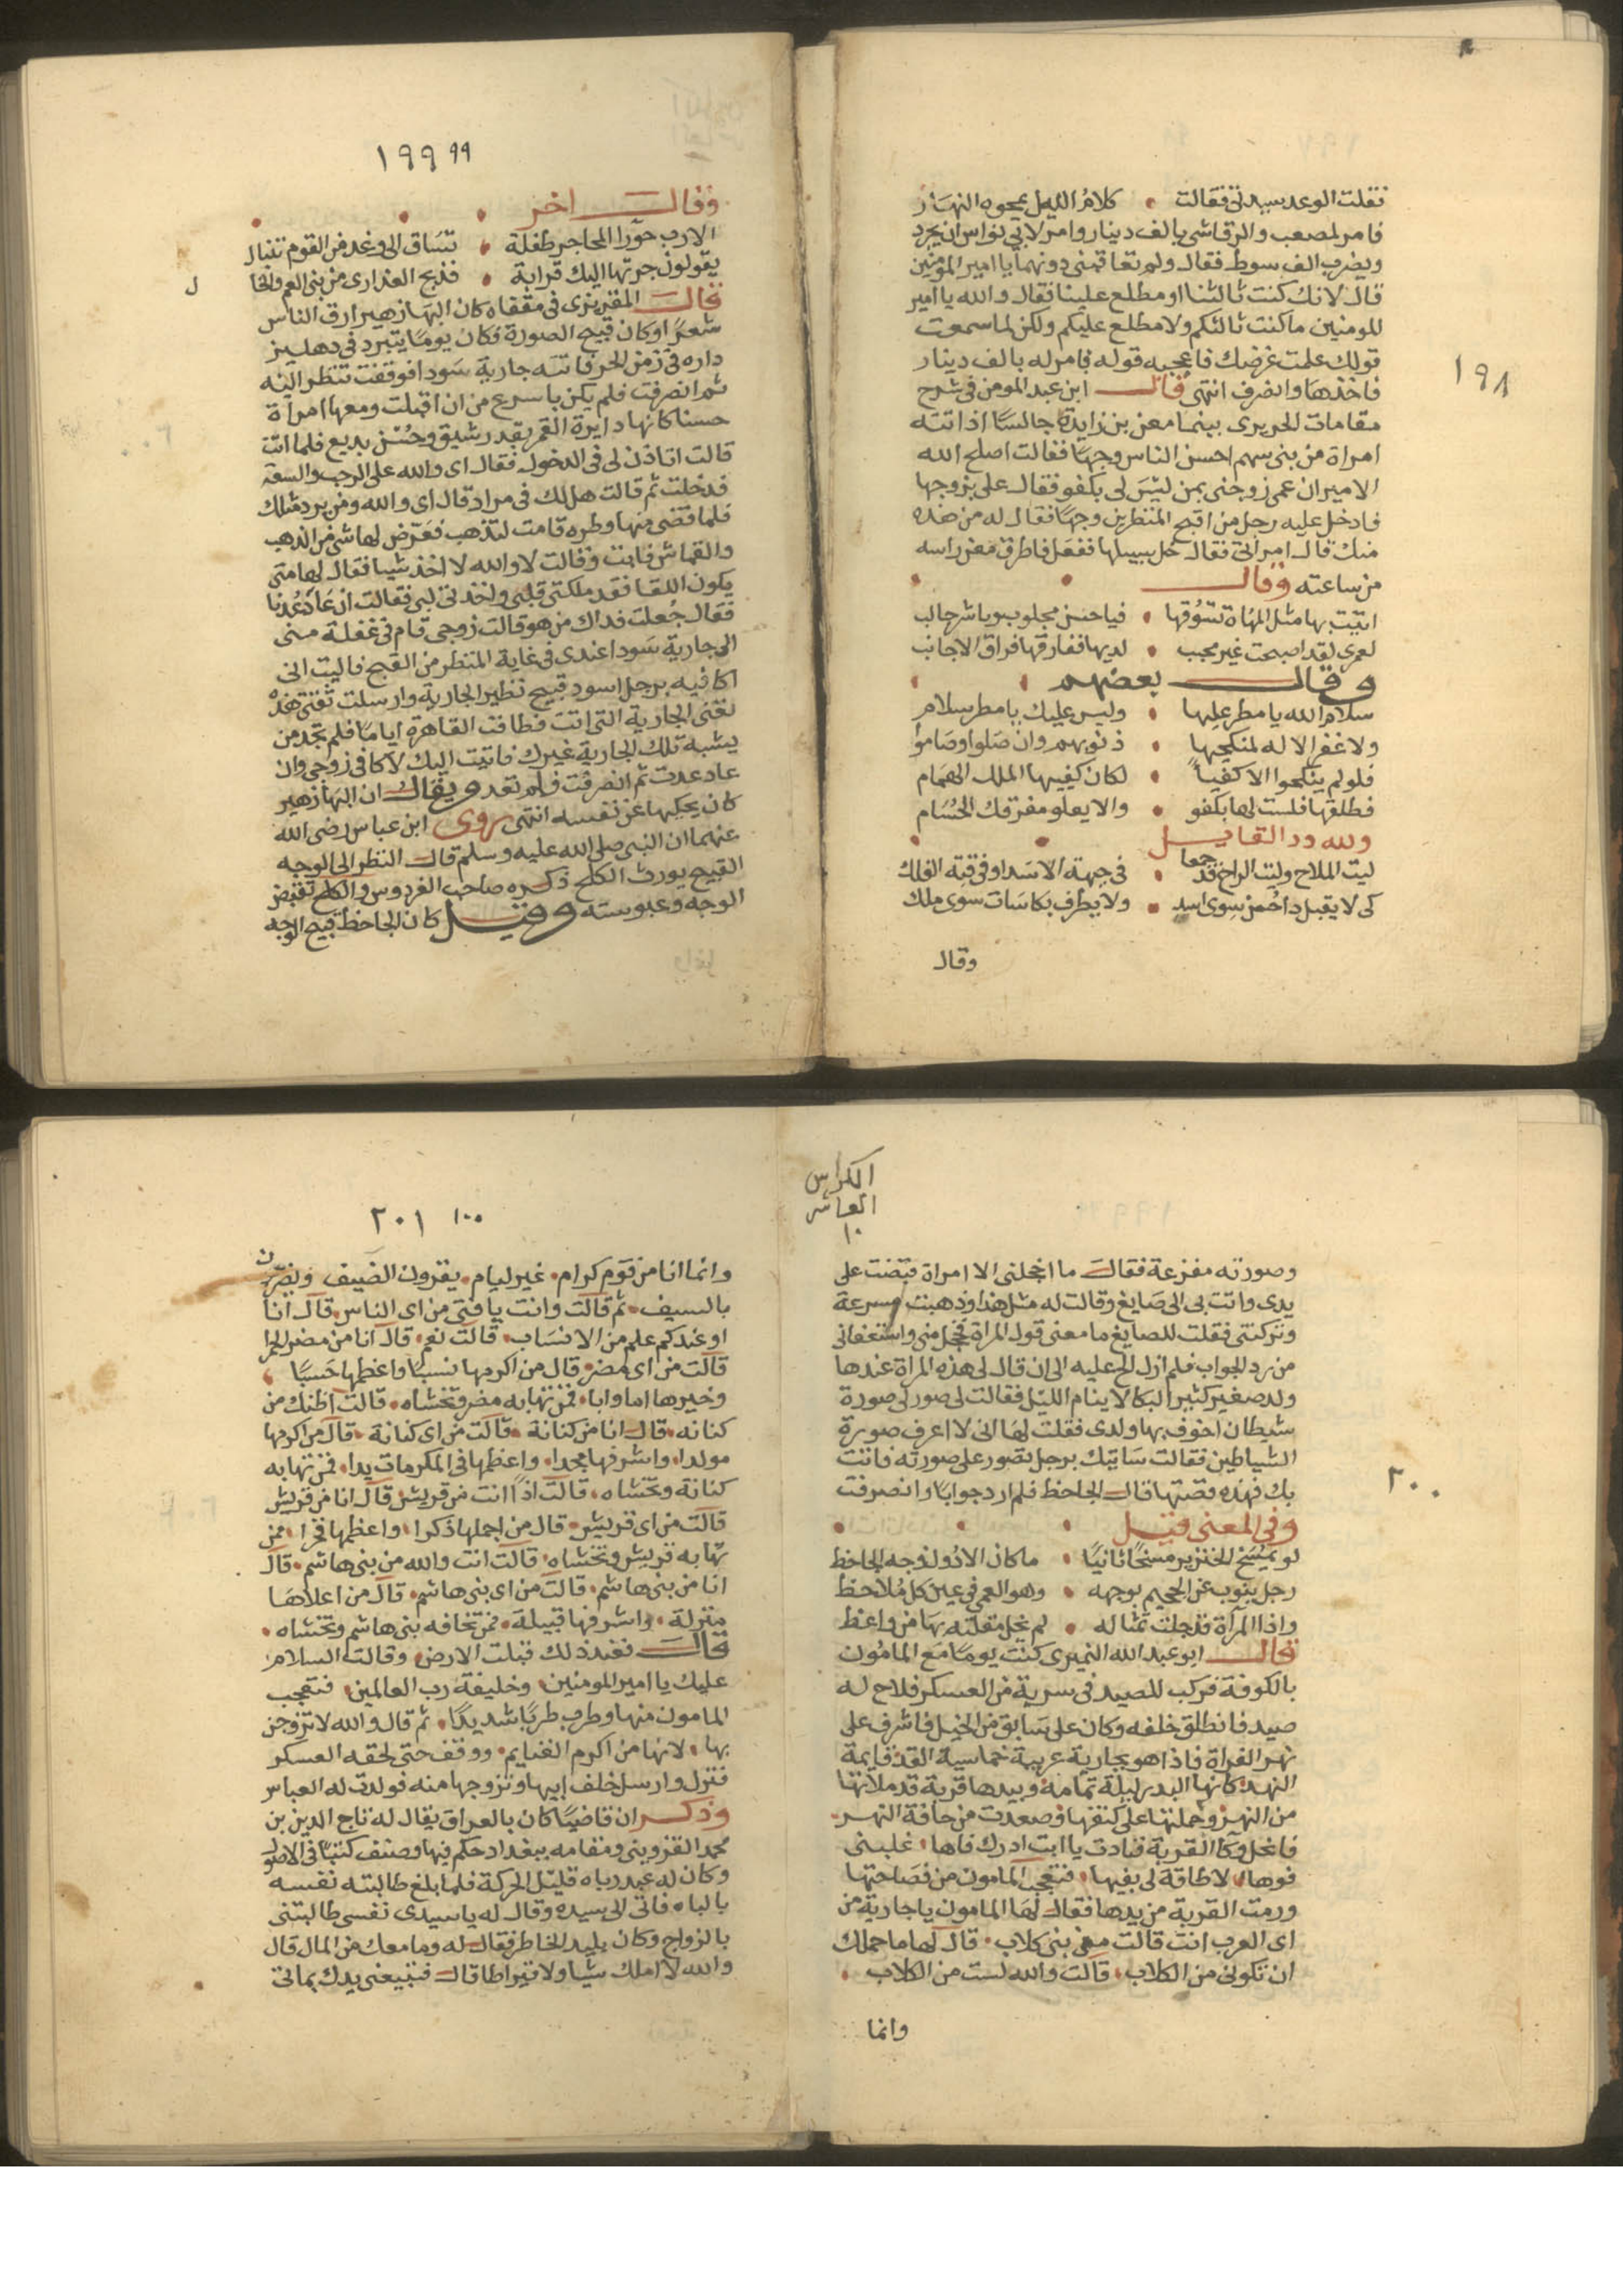 فقلت الوعد سيدتي فقالت • كلام الليل يمحوه النهار
فامر لمصعب والرقاشي بالف دينار وامر لابي نواس ان يجرد
ويضرب الف سوط فقال ولم تعاقبني دونهما يا امير المومنين
قال لانك كنت ثالثنا او مطلع علينا فقال والله يا امير
المومنين ما كنت ثالثكم ولا مطلع عليكم ولكن لما سمعت
قولك علمت غرضك فاعجبه قوله فامر له بالف دينار
فاخذها وانصرف انتهى قال ابن عبد المومن في شرح
١٩٨
مقامات الحريري بينما معن بن زايدة جالسا اذ اتته
امراة من بني سهم احسن الناس وجها فقالت اصلح الله
الامير ان عمي زوجني بمن ليس لي بكفو فقال علي بزوجها
فادخل عليه رجل من اقبح المنظرين وجها فقال له من هذه
منك قال امراتي فقال خل سبيلها ففعل فاطرق معن راسه
من ساعته وقال
اتيت بها مثل المهاة تسوقها • فيا حسن مجلوب ويا شر جالب
لعمري لقد اصبحت غير محبب • لديها ففارقها فراق الاجانب
وقال بعضهم
سلام الله يا مطر عليها • وليس عليك يا مطر سلام
ولا غفر الاله لمنكحيها • ذنوبهم وان صلوا وصاموا
فلو لم ينكحوا الا كفيا • لكان كفيها الملك الهمام
فطلقها فلست لها بكفو • والا يعلو مفرقك الحسام
ولله در القايل
ليت الملاح وليت الراح قد جمعا • في جبهة الاسد او في قبة الفلك
كي لا يقبل داحمن سوى اسد • ولا يطرف بكاسات سوى ملك
وقال
١٩٩ ٩٩
وقال اخر
الا رب حورا المحاجر طفلة • تساق الى وغد من القوم تنبال
يقولون جرتها اليك قرابة • فذبح العذارى من بني العم والخا
ل
قال المقريزي في مقفاه كان البهاز هير ارق الناس
شعرا وكان قبيح الصورة فكان يوما يتبرد في دهليز
داره في زمن الحر فاتته جارية سودا فوقفت تنظر اليه
ثم انصرفت فلم يكن باسرع من ان اقبلت ومعها امراة
حسنا كانها دايرة القمر بقد رشيق وحسن بديع فلما اتت
قالت اتاذن لي في الدخول فقال اي والله على الرحب والسعة
فدخلت ثم قالت هل لك في مراد قال اي والله ومن يرد مثلك
فلما قضى منها وطره قامت لتذهب فعرض لها شي من الذهب
والقماش فابت وقالت لا والله لا اخذ شيا فقال لها متى
يكون اللقا فقد ملكتي قلبي واخذتي لبي فقالت ان عاد عدنا
فقال جعلت فداك من هو قالت زوجي قام في غفلة مني
الى جارية سودا عندي في غاية المنظر من القبح فاليت اني
اكافيه برجل اسود قبيح نظير الجارية وارسلت ثقتي هذه
لعني الجارية التي اتت فطافت القاهرة اياما فلم تجد من
يشبه تلك الجارية غيرك فاتيت اليك لاكافي زوجي وان
عاد عدت ثم انصرفت فلم تعد ويقال ان البهاز هير
كان يحكيها عن نفسه انتهى روى ابن عباس رضي الله
عنهما ان النبي صلى الله عليه وسلم قال النظر الى الوجه
القبيح يورث الكلح ذكره صاحب الفردوس والكلح تقبض
الوجه وعبوسته وقيل كان الجاحظ قبيح الوجه
الكراس
العاشر
١٠
وصورته مفزعة فقال ما اخجلني الا امراة قبضت على
يدي واتت بي الى صايغ وقالت له مثل هذا وذهبت مسرعة
وتركتني فقلت للصايغ ما معنى قول المراة فخجل مني واستعفاني
من رد الجواب فلم ازل الح عليه الى ان قال لي هذه المراة عندها
ولد صغير كثير البكا لا ينام الليل فقالت لي صور لي صورة
شيطان اخوف بها ولدي فقلت لها اني لا اعرف صورة
الشياطين فقالت ساتيك برجل تصور على صورته فاتت
بك فهذه قصتها قال الجاحظ فلم ارد جوابا وانصرفت
٢٠٠
وفي المعنى قيل
لو يمسخ الخنزير مسخا ثانيا • ما كان الا دون وجه الجاحظ
رجل ينوب عن الجحيم بوجهه • وهو العمى في عين كل ملاحظ
واذا المرآة قد جلت تمثاله • لم تخل مقلته بها من واعظ
قال ابو عبد الله النميري كنت يوما مع المامون
بالكوفة فركب للصيد في سرية من العسكر فلاح له
صيد فانطلق خلفه وكان على سابق من الخيل فاشرف على
نهر الفراة فاذا هو بجارية عربية خماسية القد قايمة
النهد كانها البدر ليلة تمامه وبيدها قربة قد ملاتها
من النهر وحملتها على كتفها وصعدت من حافة النهر
فانحل وكا القربة فنادت يا ابت ادرك فاها • غلبني
فوها • لا طاقة لي بفيها • فتعجب المامون من فصاحتها
ورمت القربة من يدها فقال لها المامون يا جارية من
اي العرب انت قالت من بني كلاب • قال لها ما حملك
ان تكوني من الكلاب • قالت والله لست من الكلاب •
وانما
٢٠١ ١٠٠
وانما انا من قوم كرام • غير ليام • يقرون الضيف ويضربون
بالسيف • ثم قالت وانت يا فتى من اي الناس • قال انا
او عندكم علم من الانساب • قالت نعم • قال انا من مضر الحمرا
قالت من اي مضر • قال من اكرمها نسبا واعظمها حسبا •
وخيرها اما وابا • ممن تهابه مضر وتخشاه • قالت اظنك من
كنانه • قال انا من كنانة • قالت من اي كنانة • قال من اكرمها
مولدا • واشرفها مجدا • واعظمها في المكرمات يدا • ممن تهابه
كنانة وتخشاه • قالت اذا انت من قريش • قال انا من قريش
قالت من اي قريش • قال من اجملها ذكرا • واعظمها فخرا • ممن
تهابه قريش وتخشاه • قالت انت والله من بني هاشم • قال
انا من بني هاشم • قالت من اي بني هاشم • قال من اعلاها
منزلة • واشرفها قبيلة • ممن تخافه بني هاشم وتخشاه •
قال فعند ذلك قبلت الارض • وقالت السلام
عليك يا امير المومنين • وخليفة رب العالمين • فتعجب
المامون منها وطرب طربا شديدا • ثم قال والله لاتزوجن
بها • لانها من اكرم الغنايم • ووقف حتى لحقه العسكر
فنزل وارسل خلف ابيها وتزوجها منه فولدت له العباس
وذكر ان قاضيا كان بالعراق يقال له تاج الدين بن
محمد القزويني ومقامه ببغداد حكم فيها وصنف كتبا في الاصول
وكان له عبد رباه قليل الحركة فلما بلغ طالبته نفسه
بالباه فاتى الى سيده وقال له يا سيدي نفسي طالبتني
بالزواج وكان بليد الخاطر فقال له وما معك من المال قال
والله لا املك شيا ولا قيراطا قال فتبيعني يدك بماتي